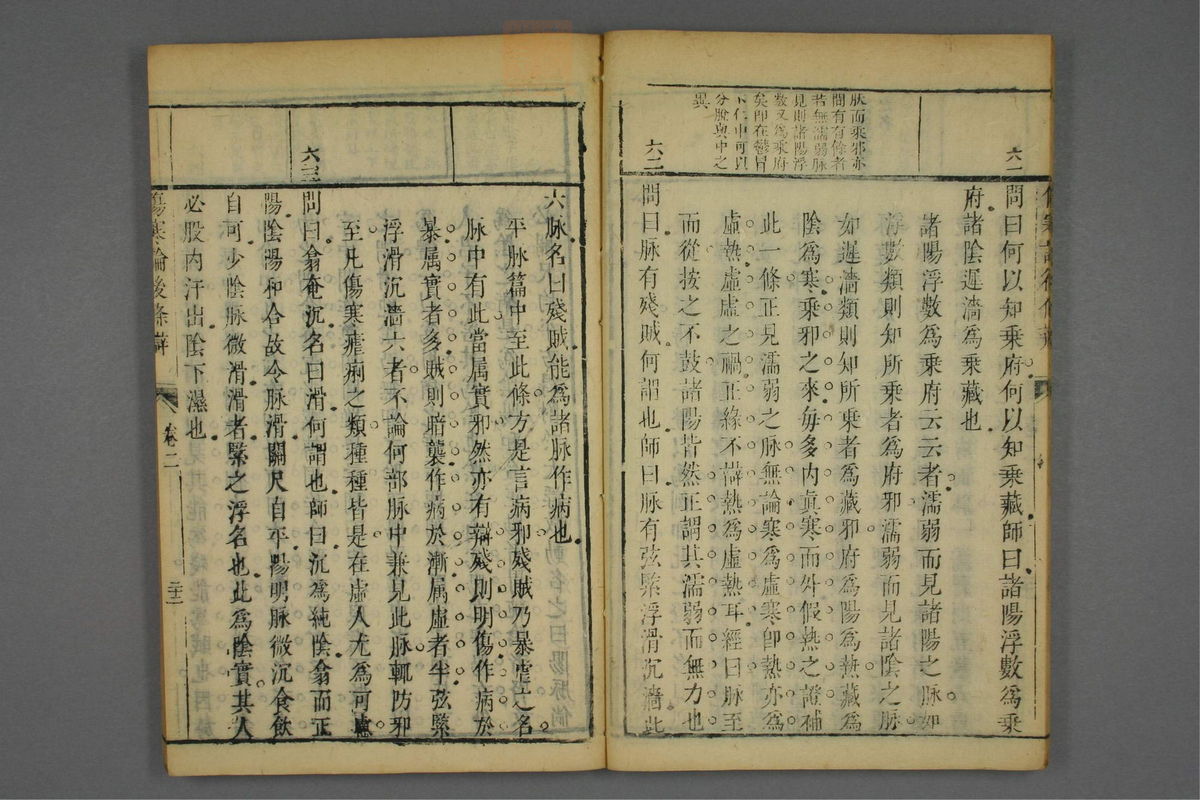 六一
問曰何以知乗府何以知乗藏師曰諸陽浮數爲乗
府諸陰遲濇爲乗藏也
諸陽浮數爲乗府云云者濡弱而見諸陽之脉如
浮數類則知所乗者爲府邪濡弱而見諸陰之脉
如遲濇類則知所乗者爲藏邪府爲陽爲熱藏爲
陰爲寒乗邪之來毎多内眞寒而外假熱之證補
此一條正見濡弱之脉無論寒爲虛寒卽熱亦爲
虛熱虛虛之禍正緣不辯熱爲虛熱耳經曰脉至
而從按之不鼓諸陽皆然正謂其濡弱而無力也
肰而乗邪亦
問有有餘者
若無濡弱脉
見則諸陽浮
數又爲乗府
矣卽在鬱冒
不仁中可以
分股與中之
異
六二
問曰脉有殘賊何謂也師曰脉有弦緊浮滑沉濇此
六脉名曰殘賊能爲諸脉作病也
平脉篇中至此條方是言病邪殘賊乃暴虐之名
脉中有此當属實邪然亦有辯殘則明傷作病於
暴属實者多賊則暗襲作病於漸属虛者半弦緊
浮滑沉濇六者不論何部脉中兼見此脉輒防邪
至凡傷寒瘧痢之類種種皆是在虛人尤爲可慮
六三
問曰翕奄沉名曰滑何謂也師曰沉爲純陰翕而正
陽陰陽和合故令脉滑關尺自平陽明脉微沉食飲
自可少陰脉微滑滑者緊之浮名也此爲陰實其人
必股内汗出陰下濕也
傷寒論後條辯
卷二